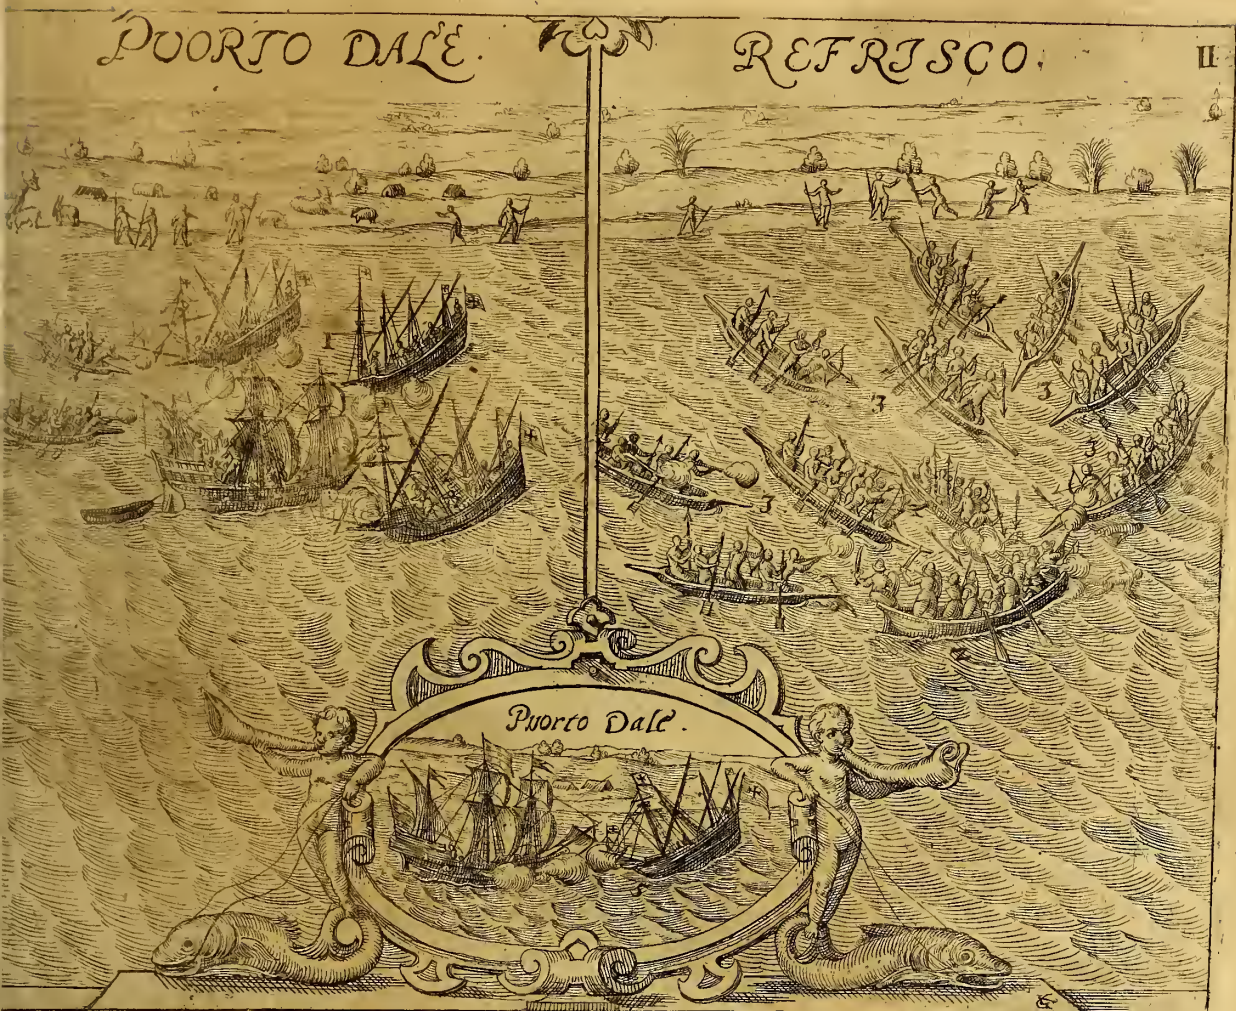 PUORTO DALE.
REFRISCO.
II
1
3
3
3
3
2
Puorto Dale.
5